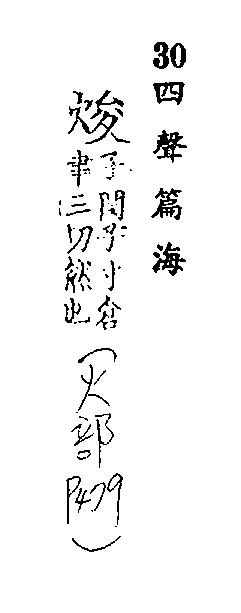 30四聲篇海
焌子閏子寸倉
聿三切然也
(火部
P479)